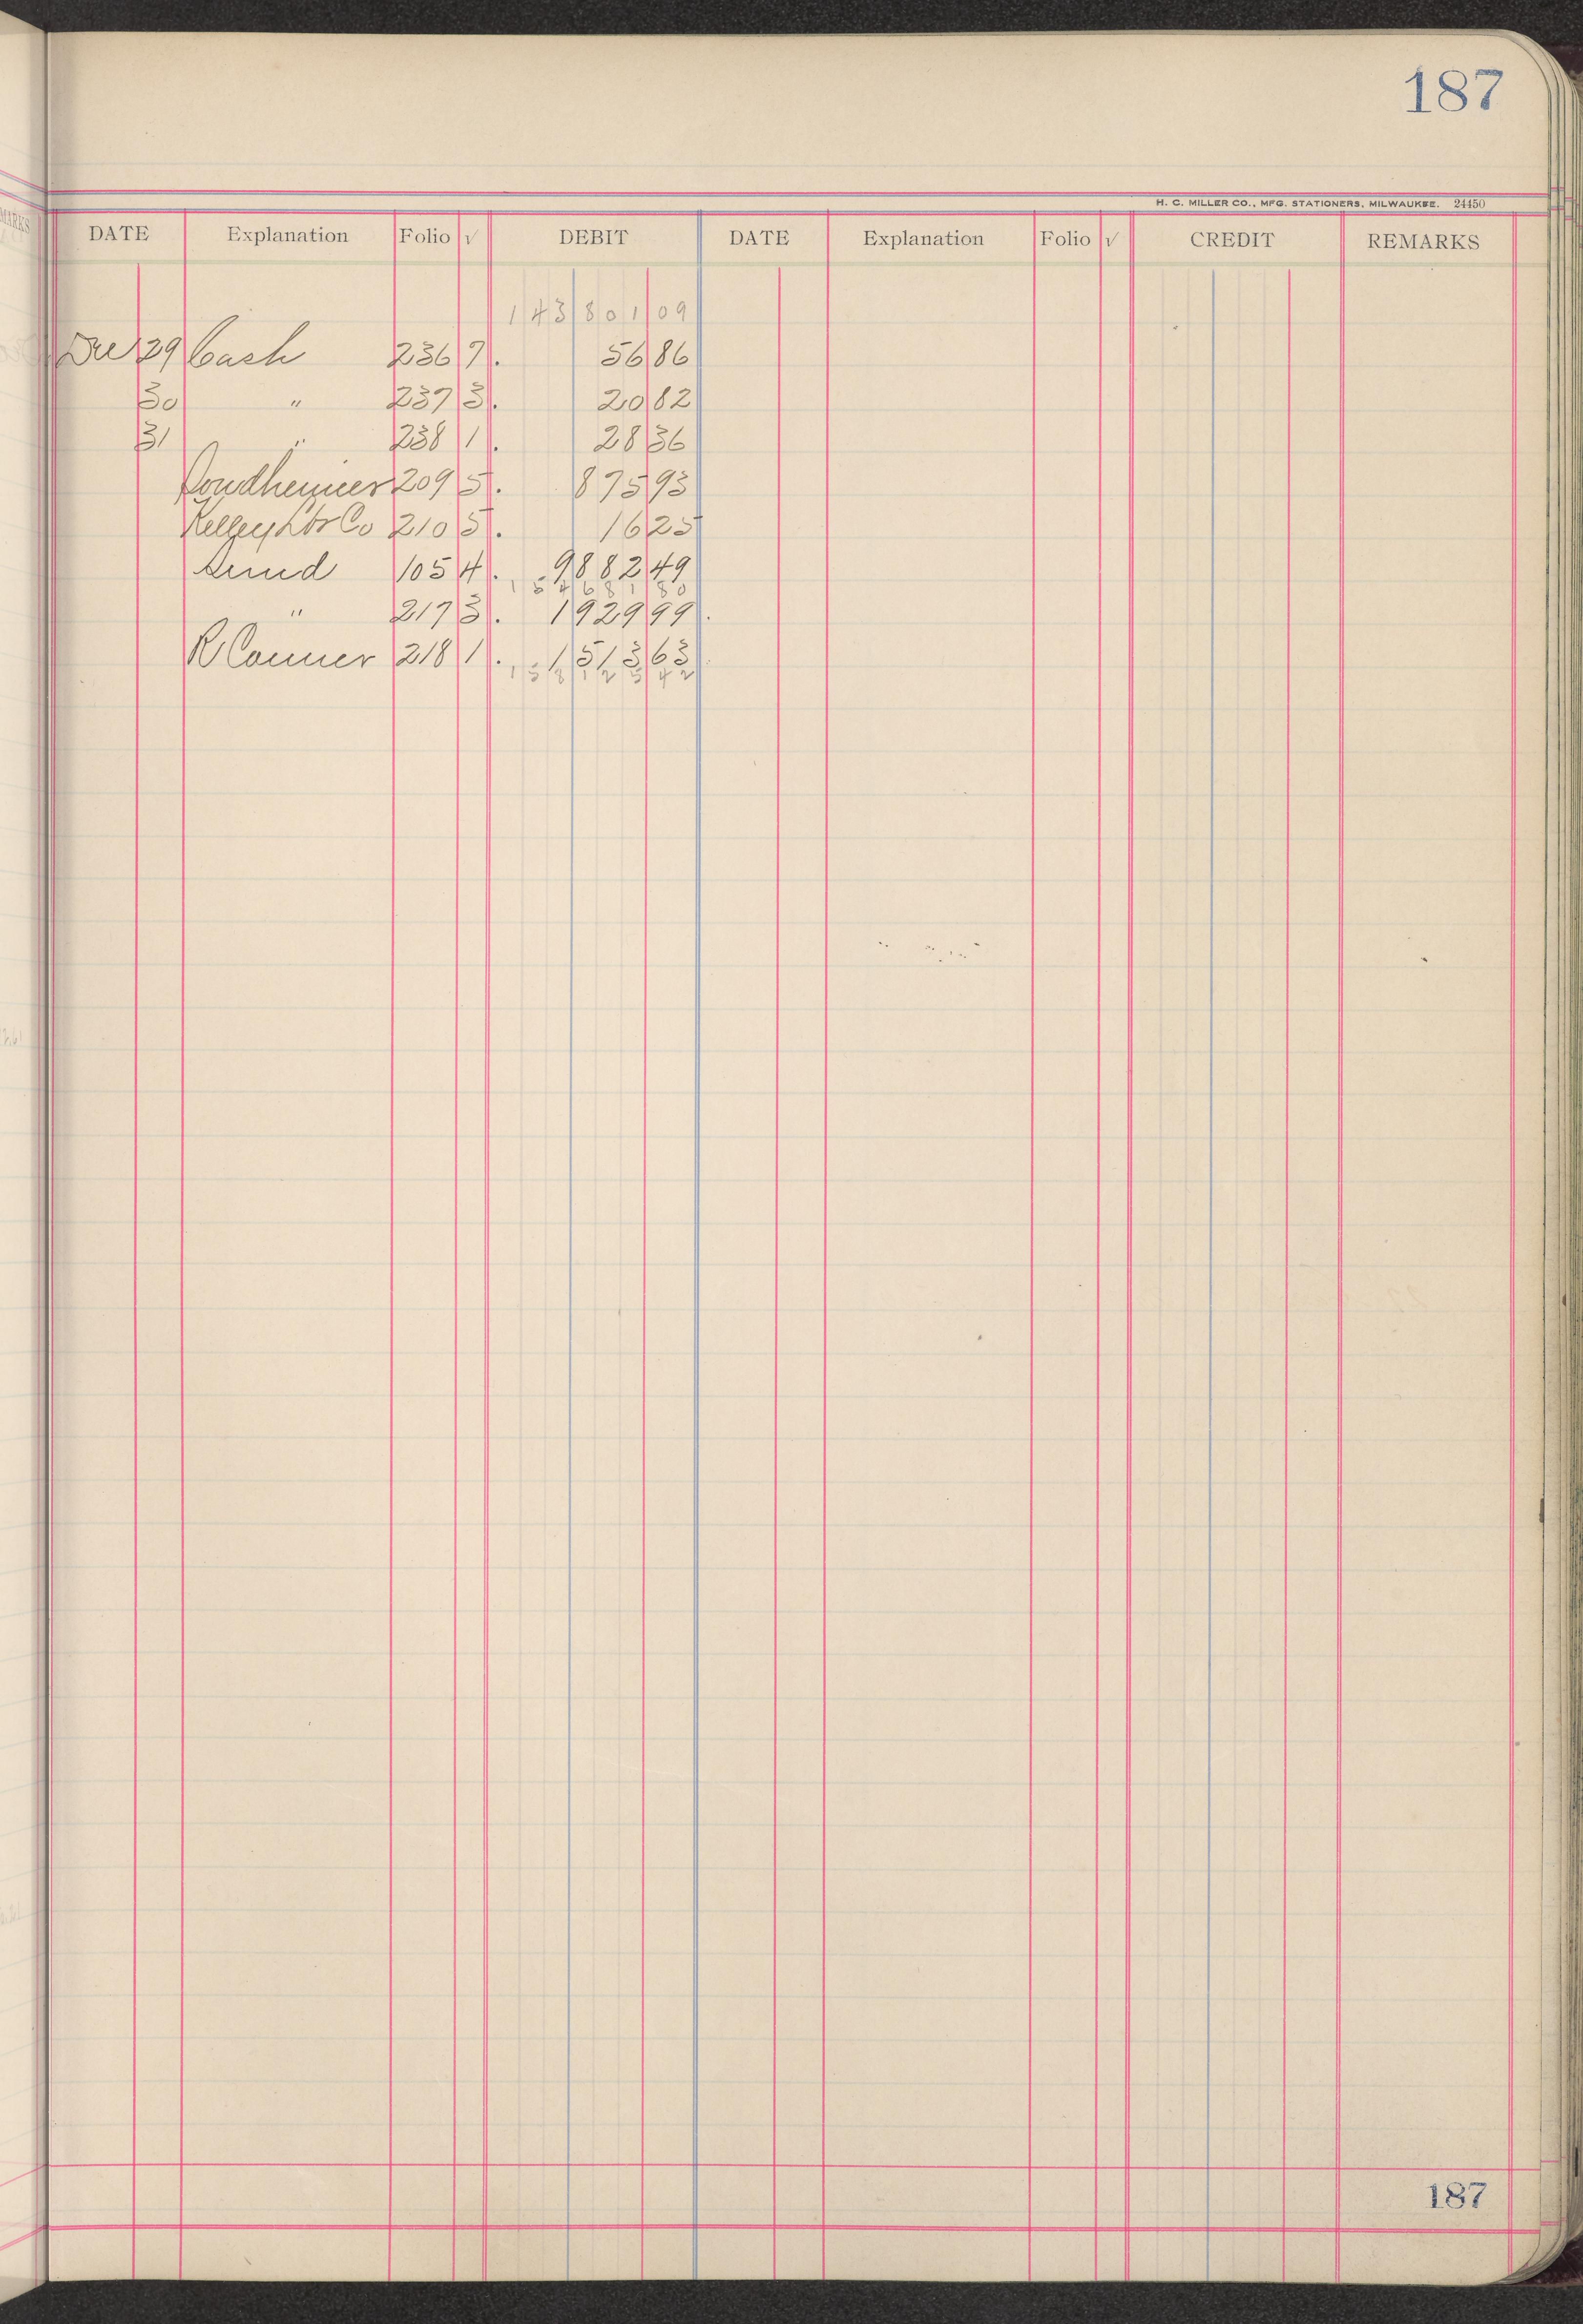 187
H. C. MILLER CO., MFG. STATIONERS, MILWAUKEE. 24450
DATE Explanation Folio √ DEBIT DATE Explanation Folio √ CREDIT REMARKS
143 801 09
Dec 29 Cash 236 7 56 86
30 " 237 3 20 82
31 " 238 1 28 36
209 5 875 93
Kelley Lbr Co 210 5 16 25
Sund 105 4 9882 49
154681 80
" 217 3 1929 99
R Conner 218 1 1513 63
158125 42
187